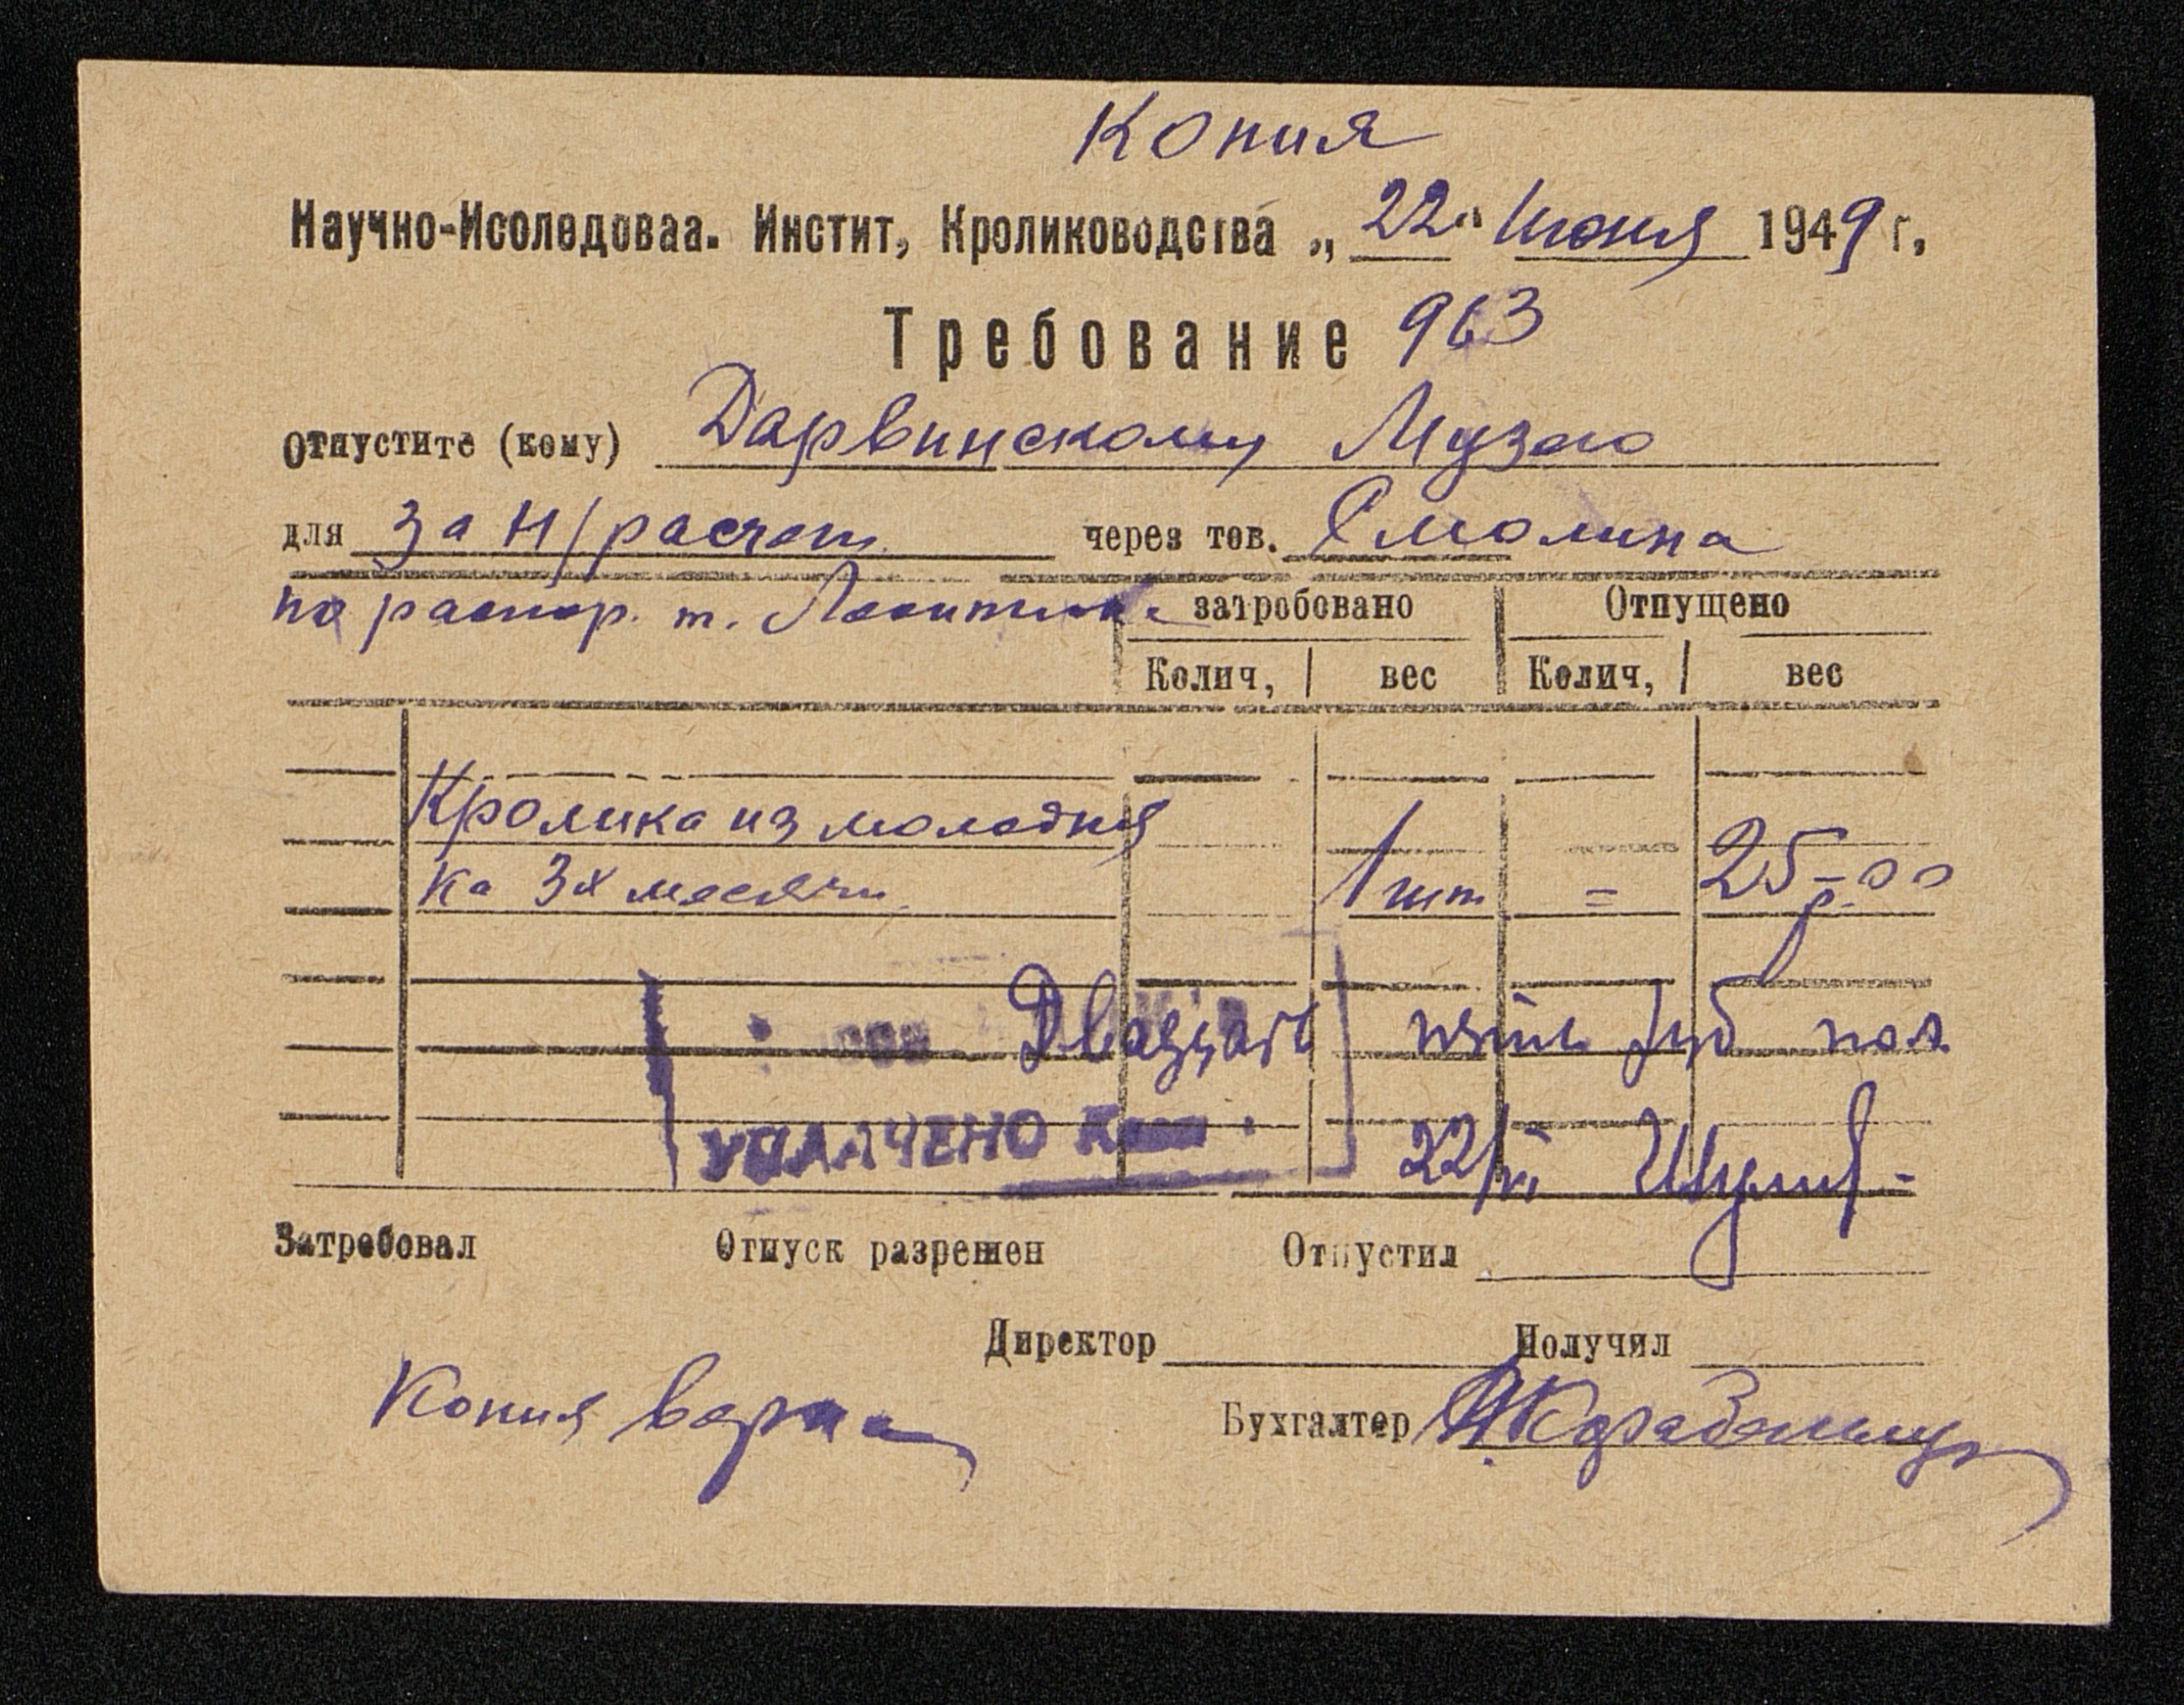 Копия
Научно-Исоледоваа. Инстит, Кролиководства „22" Июня 1949 г.
Требование 963
Отпустите (кому) Дарвинскому Музею
для за н/расчет через тов. Смолина
по распор. т. затробовано Отпущено
Колич, вес Колич, вес
Кролика из молодня
ка 3х месячн. 1 шт = 25р-00
Двадцать пять руб
УПЛАЧЕНО
22/VI
Затребовал Отпуск разрешен Отпустил
Директор Получил
Копия верна Бухгалтер